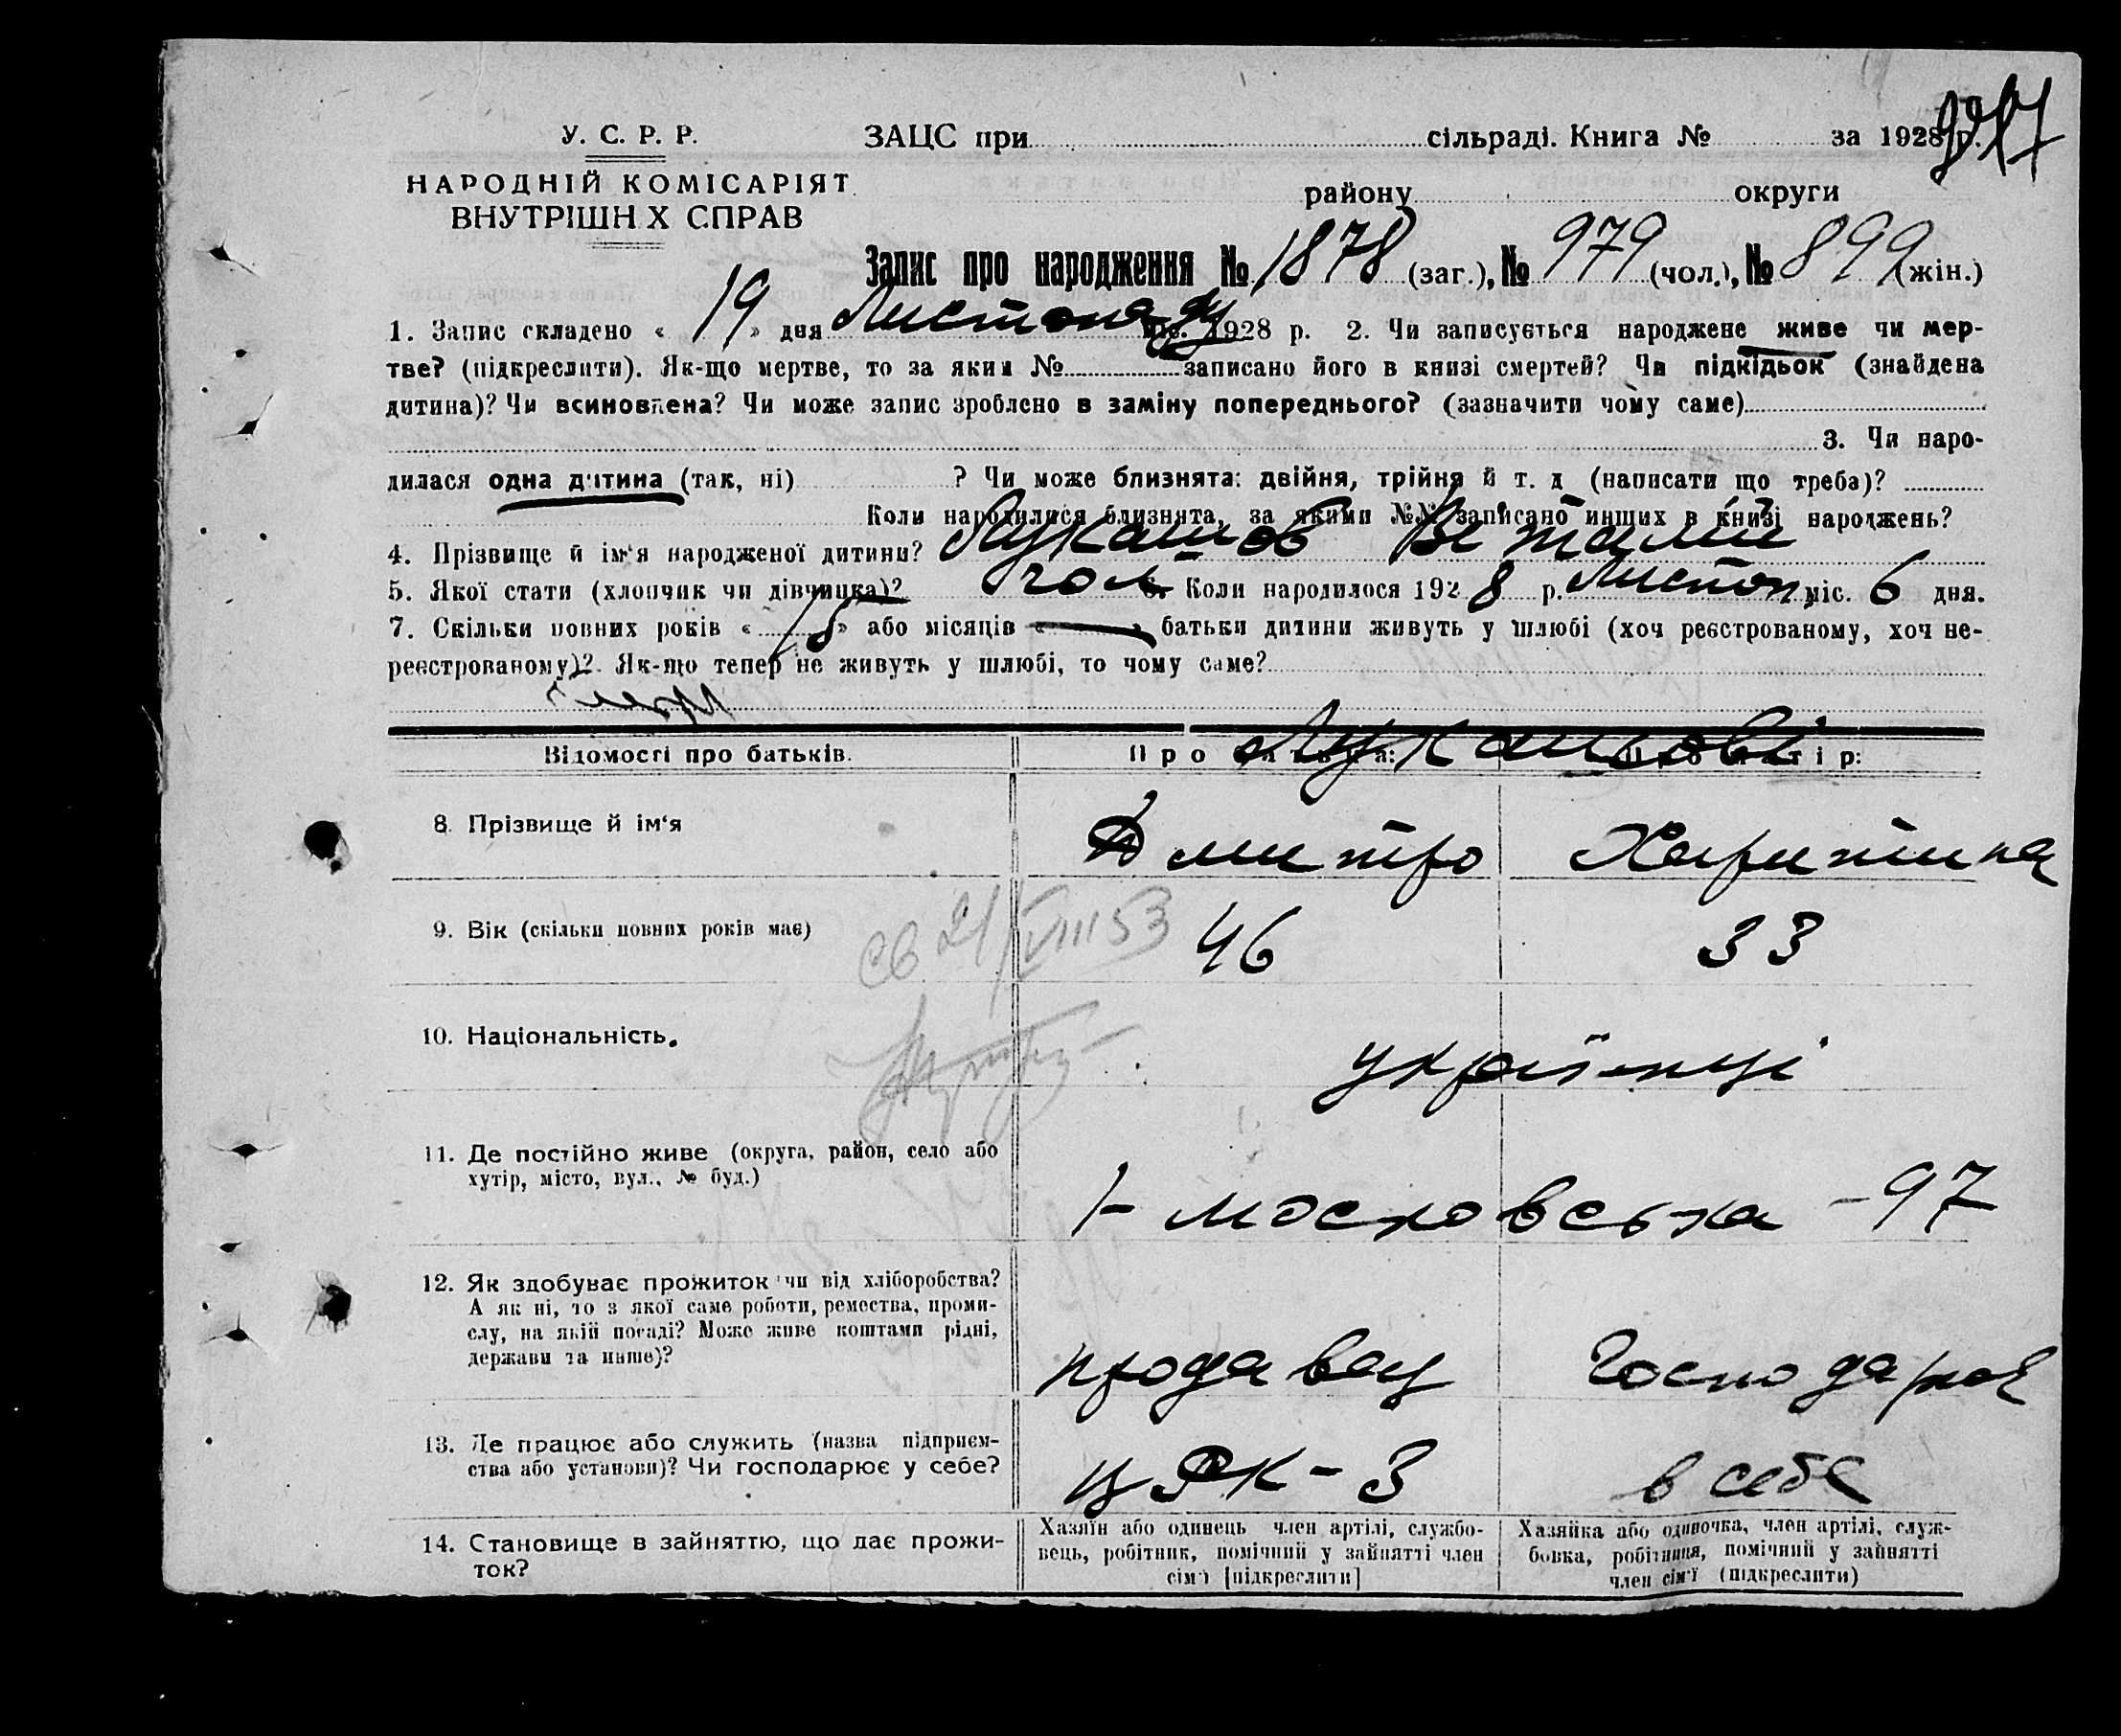 У. С. Р. Р.
НАРОДНІЙ КОМІСАРІЯТ
ВНУТРІШН Х СПРАВ
ЗАЦС при сільраді. Книга № за 1928 р.
району округи
Запис про народження № 1878 (заг.), № 979 (чол.), № 899 (жін.)
1. Запис складено « 19 » дня Листопаду 1928 р. 2. Чи записується народжене живе чи мер-
тве? (підкреслити). Як-що мертве, то за яким № записано його в книзі смертей? Чи підкідьок (знайдена
дитина)? Чи всиновлена? Чи може запис зроблено в заміну попереднього? (зазначити чому саме)
3. Чи наро-
дилася одна дитина (так, ні) ? Чи може близнята: двійня, трійня й т. д (написати що треба)?
Коли народилися близнята, за якими №№ записано инших в книзі народжень?
4. Прізвище й ім'я народженої дитини? Лукашов Віталій
5. Якої стати (хлопчик чи дівчинка)? чол 6. Коли народилося 1928 р. Листоп. міс. 6 дня.
7. Скільки повних років « 15 » або місяців « — » батьки дитини живуть у шлюбі (хоч реєстрованому, хоч не-
реєстрованому)? Як-що тепер не живуть у шлюбі, то чому саме?
Відомості про батьків. Про батька: Про матір:
Лукашові
8. Прізвище й ім'я Дмитро Харитина
9. Вік (скільки повних років має) 46 33
св 21/VIII 53
10. Національність. українці
11. Де постійно живе (округа, район, село або
хутір, місто, вул., № буд.)
1-московська - 97
12. Як здобуває прожиток чи від хліборобства?
А як ні, то з якої саме роботи, ремества, проми-
слу, на якій посаді? Може живе коштами рідні,
держави та инше)?
продавец господарює
13. Де працює або служить (назва підприєм-
ства або установи)? Чи господарює у себе?
ЦРК-3 в себе
14. Становище в зайняттю, що дає прожи-
ток?
Хазяїн або одинець член артілі, службо-
вець, робітник, помічний у зайнятті член
сім'ї [підкреслити]
Хазяйка або одиночка, член артілі, служ-
бовка, робітниця, помічний у зайнятті
член сім'ї (підкреслити)